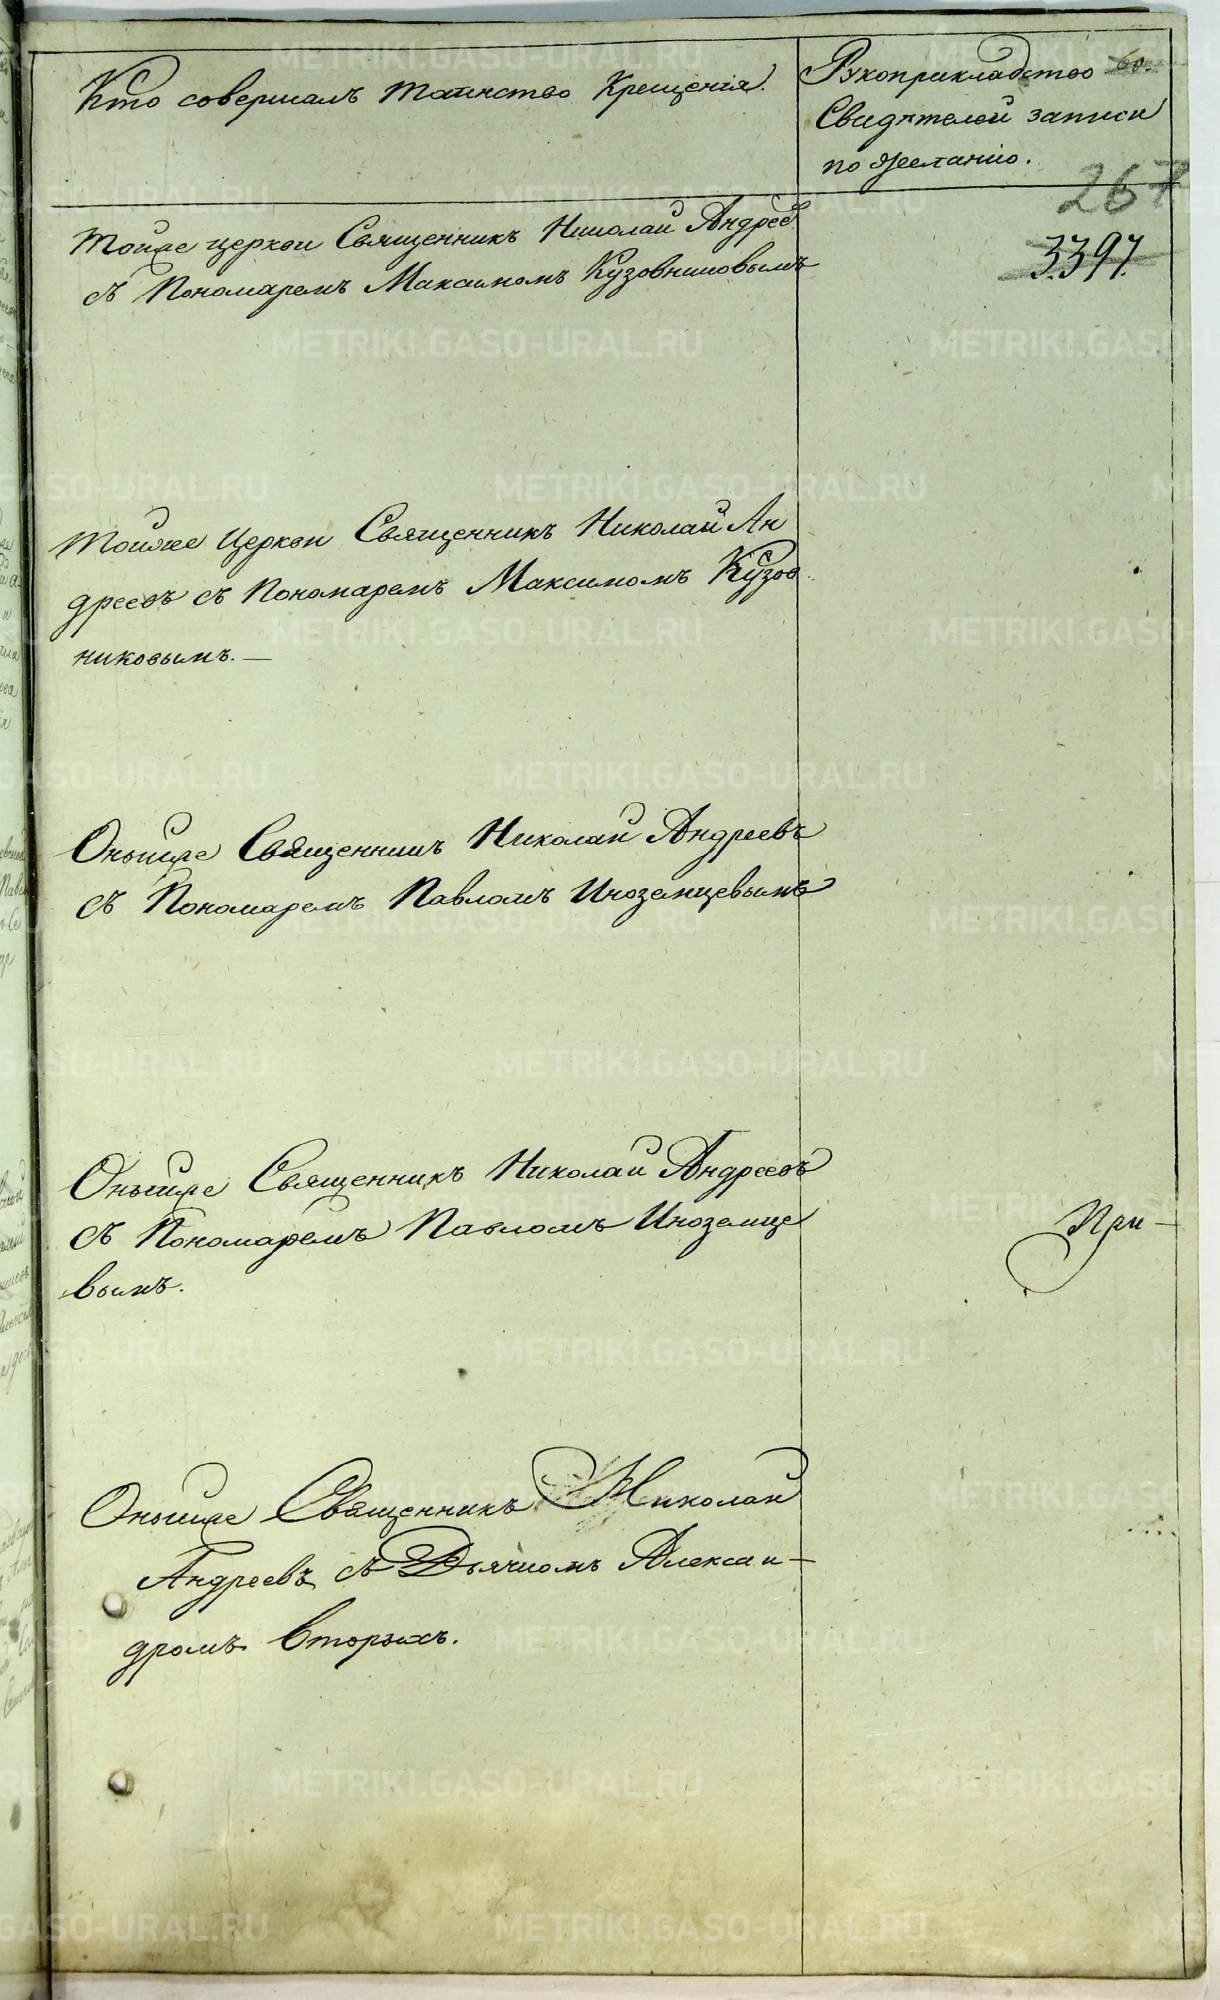 Кто совершалъ таинство Крещенія.
Рукоприкладство 60.
Свидѣтелей записи
по желанію.
267
3397.
Тойже церкви Священникъ Николай Андрее
съ Пономаремъ Максимомъ Кузовниковымъ
Тойже Церкви Священникъ Николай Ан
дреевъ съ Пономаремъ Максимомъ Кузов
никовымъ. —
Оныйже Священникъ Николай Андреевъ
съ Пономаремъ Павломъ Иноземцевымъ
Оныйже Священникъ Николай Андреевъ
съ Пономаремъ Павломъ Иноземце
вымъ.
При —
Оныйже Священникъ Николай
Андреевъ съ Дьячкомъ Алексан —
дромъ Вторыхъ.
METRIKI.GASO-URAL.RU